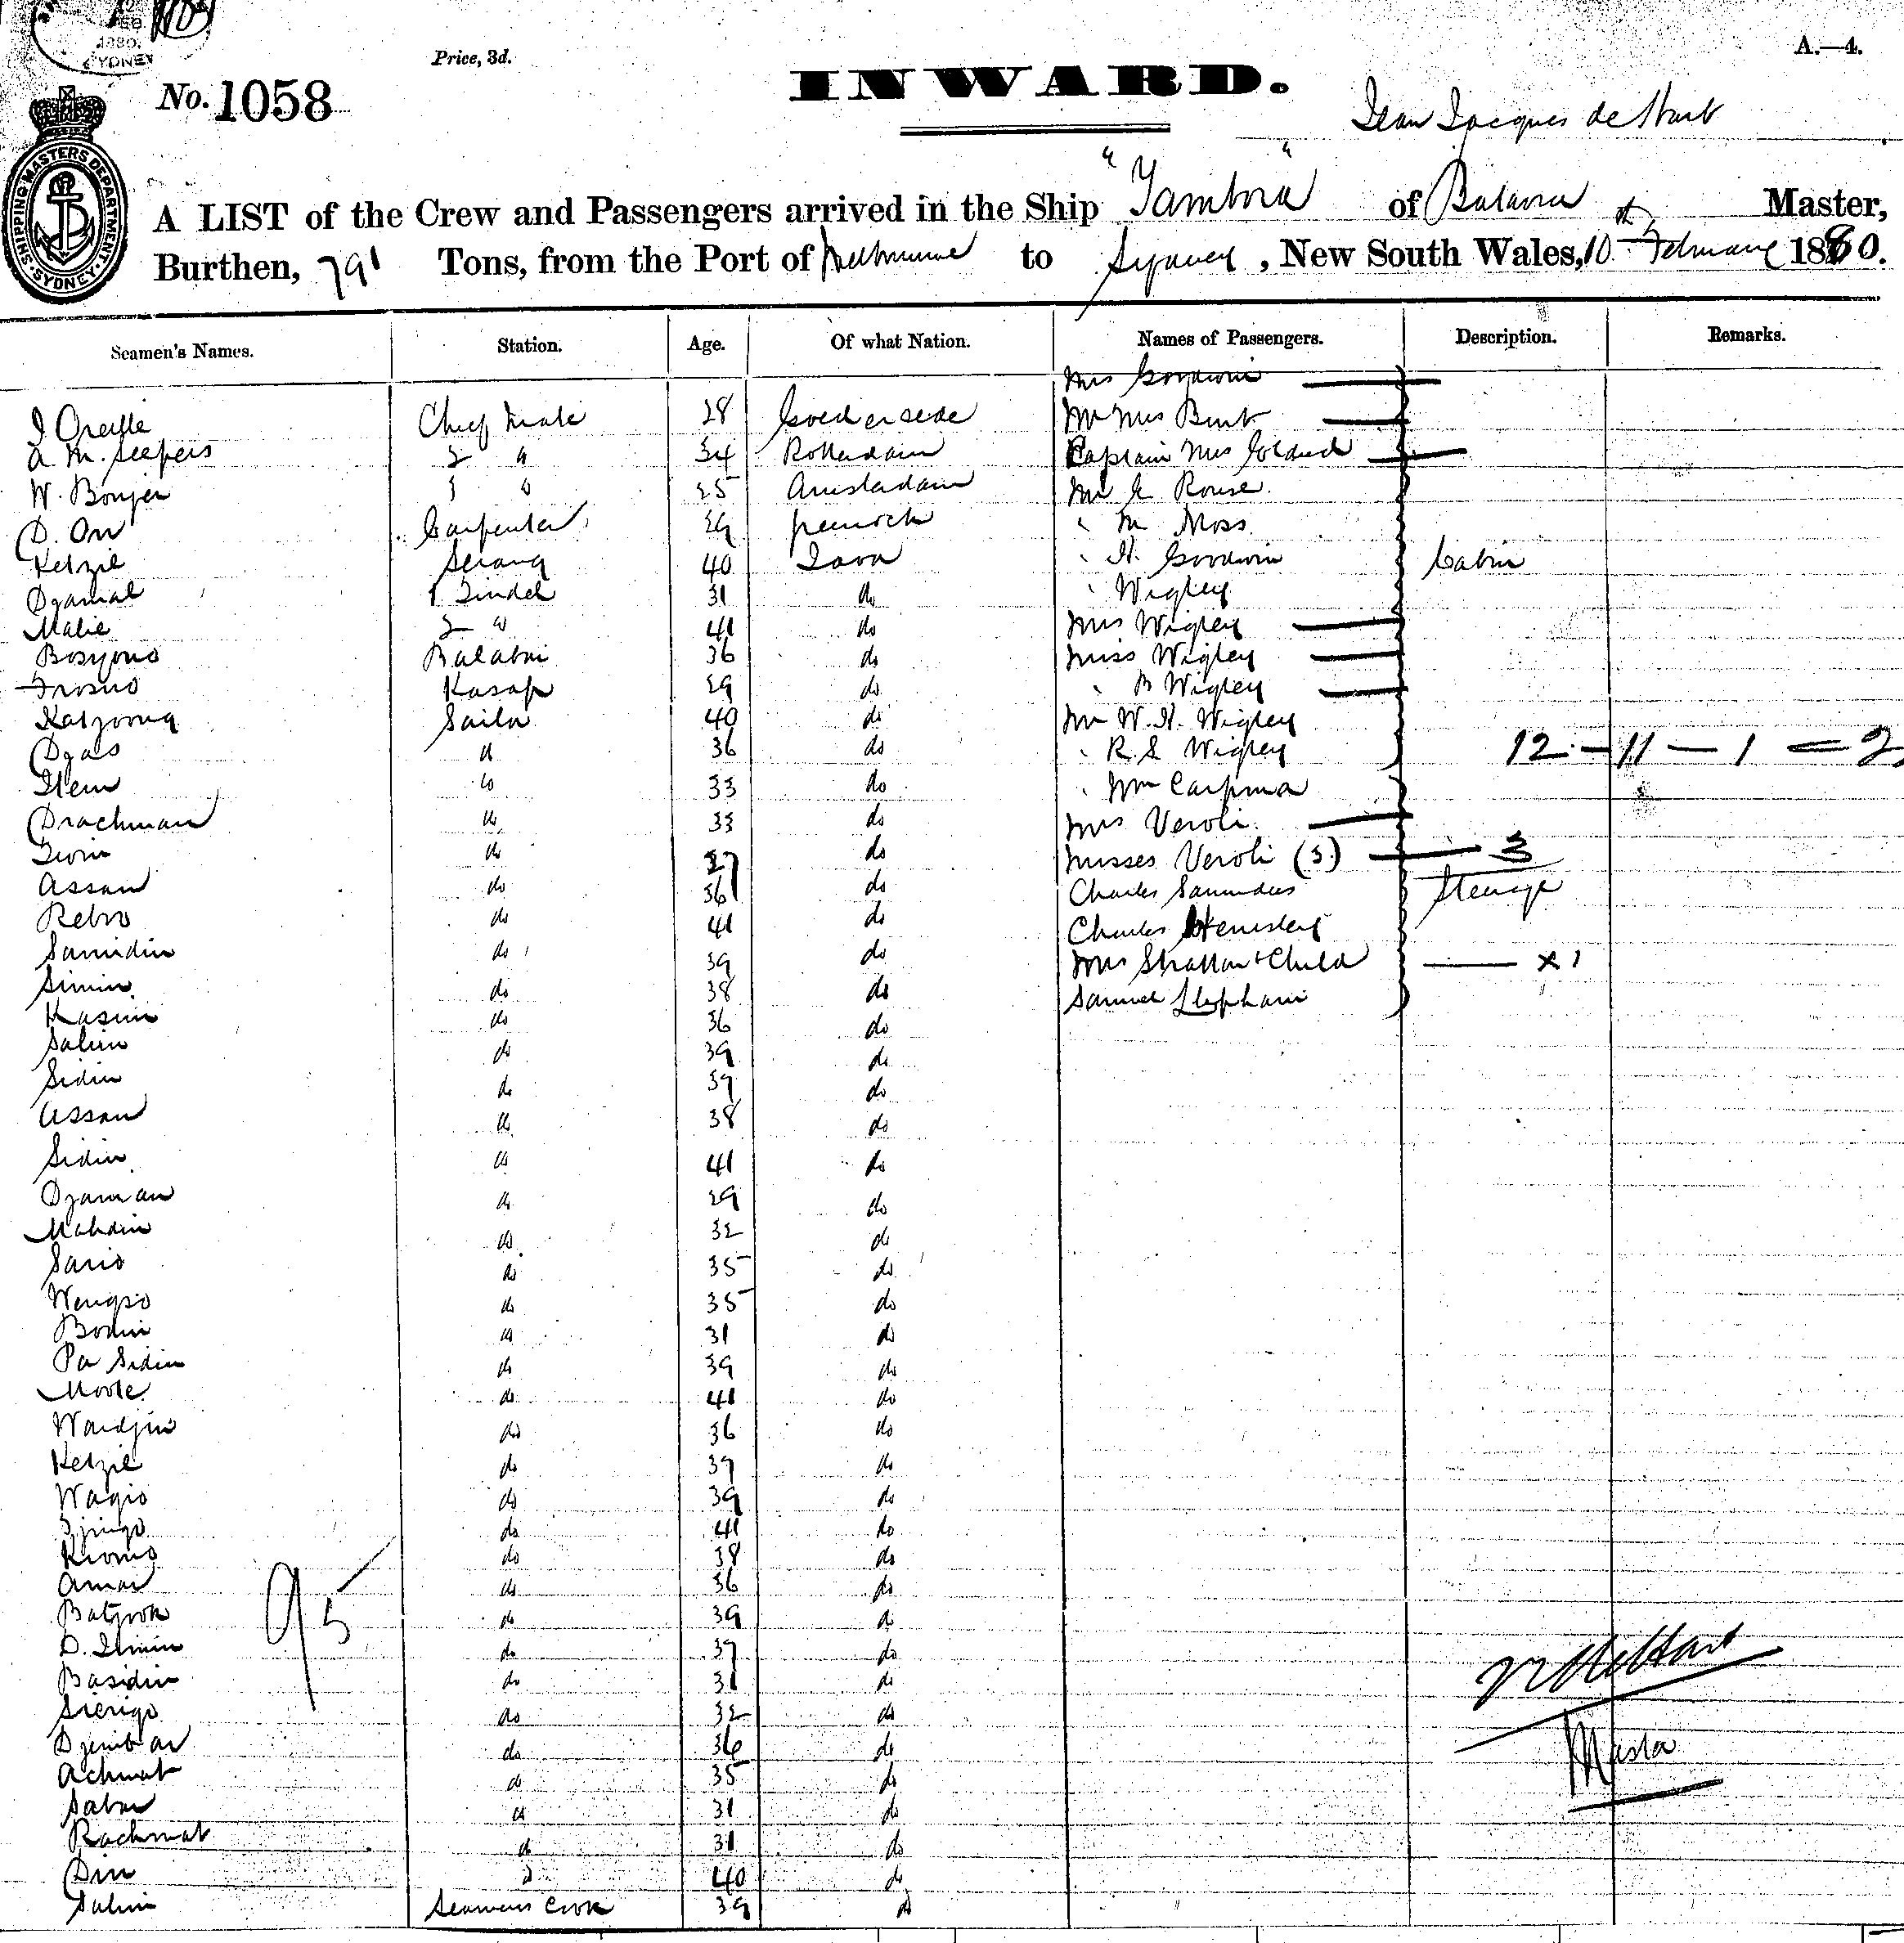 1880
SYDNEY
Price, 3d.
A.—4.
No. 1058
INWARD.
Jean Jacques de Hart
SHIPPING MASTERS DEPARTMENT. SYDNEY.
A LIST of the Crew and Passengers arrived in the Ship "Tambora" of Batavia Master,
Burthen, 791 Tons, from the Port of Melbourne to Sydney, New South Wales, 10th February 1880.
Seamen's Names. Station. Age. Of what Nation. Names of Passengers. Description. Remarks.
Mrs Goodwin
Chief Mate 28 Goedereede Mr Mrs Burt
A. M. Seepers 2 " 34 Rotterdam Captain Mrs
W. Bonjer 3 " 25 Amsterdam Mr E Rouse
D. Orr Carpenter 29 Greenock " M Moss
Ketzil Serang 40 Java " H. Goodwin Cabin
Djamal 1 Tindel 31 do " Wigley
Malie 2 " 41 do Mrs Wigley
Bosyono 36 do Miss Wigley
Trosno Kasap 29 do " B Wigley
Katzoong Sailor 40 do Mr W. H. Wigley
Djas do 36 do " R. S. Wigley 12 - 11 - 1 = 2
Item do 33 do " Wm
Drachman do 33 do Mrs Veroli
do 37 do Misses Veroli (3.) 3
Assan do 36 do Charles Saunders Steerage
Retro do 41 do Charles Hemsley
Samidin do 39 do Mrs Stratton & Child x 1
Simin do 38 do Samuel Stephani
Kasim do 36 do
Salim do 39 do
Sidin do 39 do
Assan do 38 do
Sidin do 41 do
Djaman do 29 do
Mahdin do 32 do
Sario do 35 do
Wongso do 35 do
Bodin do 31 do
Pa Sidin do 39 do
Moole do 41 do
Wardjio do 36 do
Ketzil do 39 do
Wagio do 39 do
do 41 do
Kromo do 38 do
Amar do 36 do
Batjook do 39 do
95
D. Simin do 37 do
Basidin do 31 do
do 32 do
Djembar do 36 do
Achmat do 35 do
Sabar do 31 do
Rachmat do 31 do
Din do 40 do
Salim Seamens Cook 39 do
JJ de Hart
Master